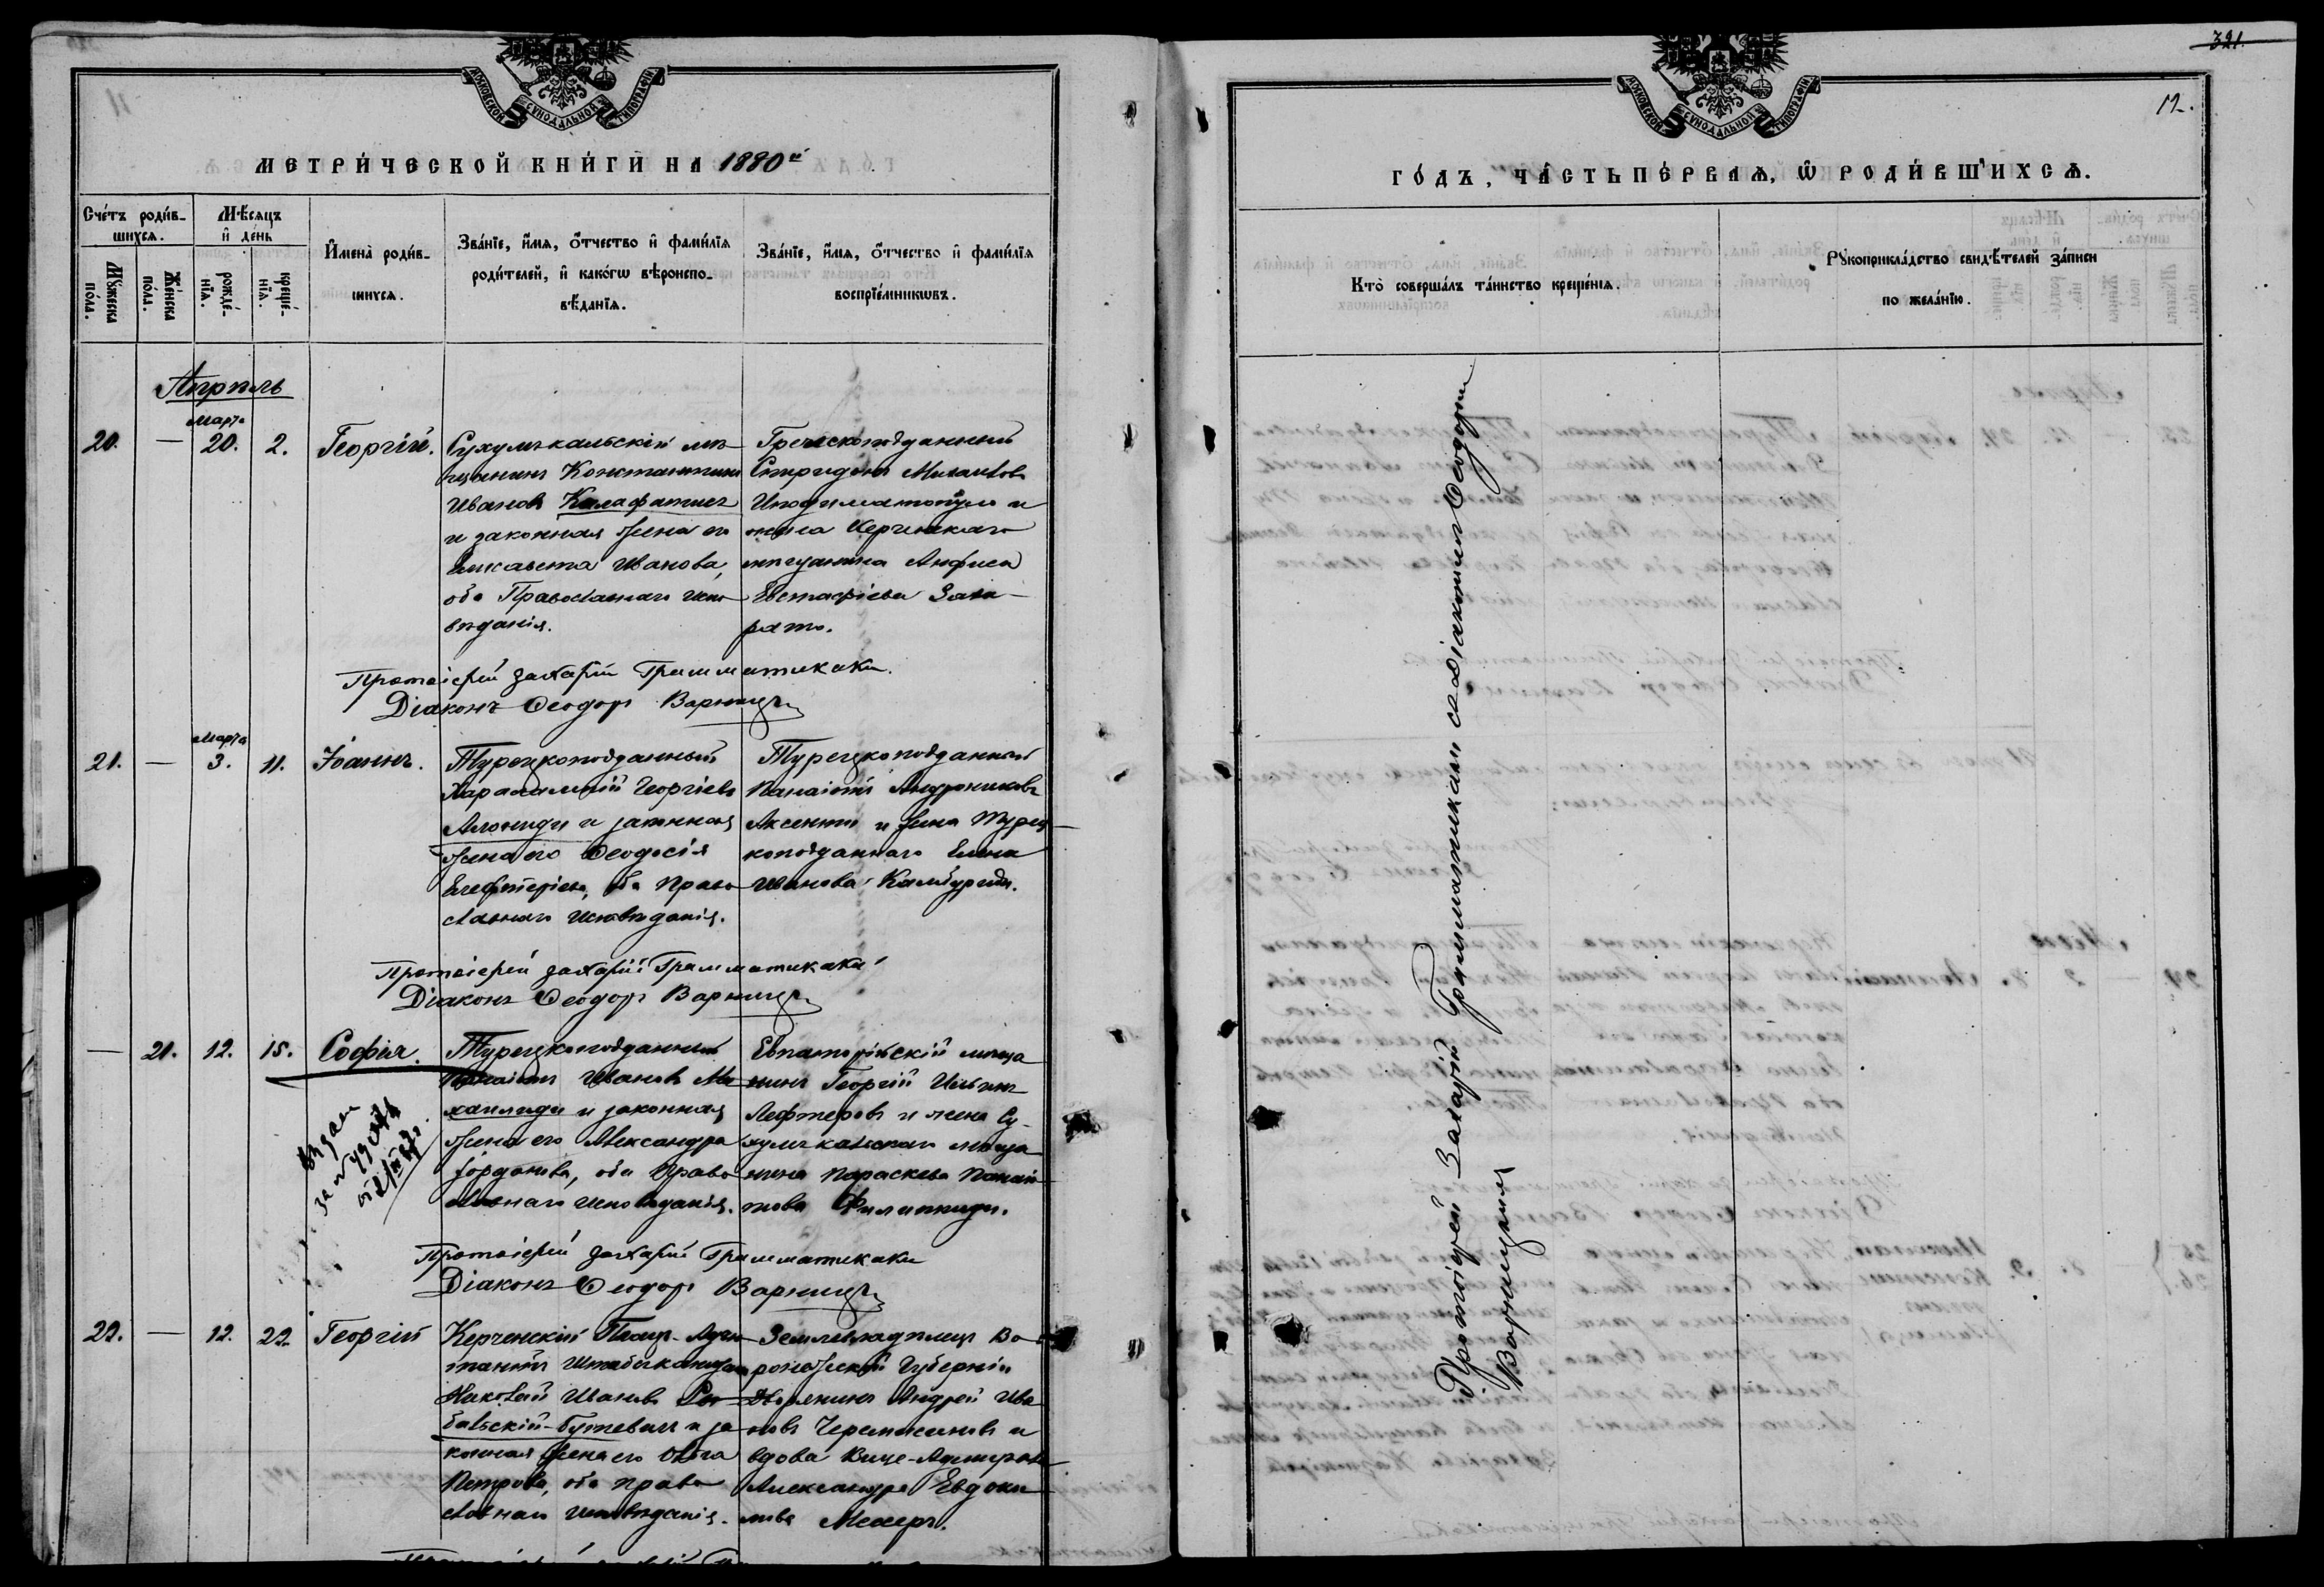 МОСКОВСКОЙ СѴНОДАЛЬНОЙ ТИПОГРАФІИ
МЕТРИ́ЧЕСКОЙ КНИ́ГИ НА 1880й
Сче́тъ роди́в-
шихся.
Мѣ́сяцъ
и҆ де́нь
Мꙋ́жеска
по́ла.
Же́нска
по́ла.
рожде́-
нїѧ.
креще́-
нїѧ.
И҆мена̀ роди́в-
шихся.
Зва́нїе, и҆́мя, ѻ҆́тчество и҆ фами́лїя
роди́телей, и҆ како́гѡ вѣроиспо-
вѣ́данїя.
Зва́нїе, и҆́мя, ѻ҆́тчество и҆ фами́лїя
воспрїе́мникѡвъ.
Апрѣль
20. — Марта 20. 2. Георгій.
Сухумъ-кальскій мѣ-
щанинъ Константинъ
Ивановъ Калафатисъ
и законная жена его
Елисавета Иванова,
оба Православнаго испо-
вѣданія.
Греческоподданный
Спиридонъ
и
жена Керченскаго
мѣщанина Анфиса
Евстафіева
Протоіерей Захарій Грамматикаки.
Діаконъ Ѳеодоръ Варницкій
21. — Марта 3. 11. Іоаннъ.
Турецкоподданный
Харалампій Георгіевъ
и законная
жена его Ѳеодосія
Елефтеріева, оба Право-
славнаго исповѣданія.
Турецкоподданный
Панаіотъ Андрониковъ
и жена Турец-
коподданнаго Елена
Иванова
Протоіерей Захарій Грамматикаки
Діаконъ Ѳеодоръ Варницкій
— 21. 12. 15. Софія.
Турецкоподданный
Панаіотъ Ивановъ Ми-
хаилиди и законная
жена его Александра
Іорданова, оба Право-
славнаго исповѣданія.
Евпаторійскій мѣща-
нинъ Георгій
Лефтеровъ и жена Су-
хумъ-кальскаго мѣща-
нина Параскева Панаіо-
това Филиппиди.
за №
Протоіерей Захарій Грамматикаки
Діаконъ Ѳеодоръ Варницкій
22. — 12. 22. Георгій
Керченскій Плацъ-Адъю-
тантъ Штабсъ-капитанъ
Николай Ивановъ
и за-
конная жена его Ольга
Петрова, оба Право-
славнаго исповѣданія.
Землевладѣлецъ Во-
ронежской Губерніи
Дворянинъ Андрей Ива-
новъ Черемисиновъ и
вдова Вице-Адмирала
Александра Евдоки-
мова
321.
12.
МОСКОВСКОЙ СѴНОДАЛЬНОЙ ТИПОГРАФІИ
ГО́ДЪ, ЧА́СТЬ ПЕ́РВАѦ, Ѡ҆ РОДИ́ВШИХСѦ.
Кто̀ соверша́лъ та́инство креще́нїя.
Рꙋкоприкла́дство свидѣ́телей за́писи
по жела́нїю.
Протоіерей Захарій Грамматикаки съ Діакономъ Ѳеодоромъ
Варницкимъ